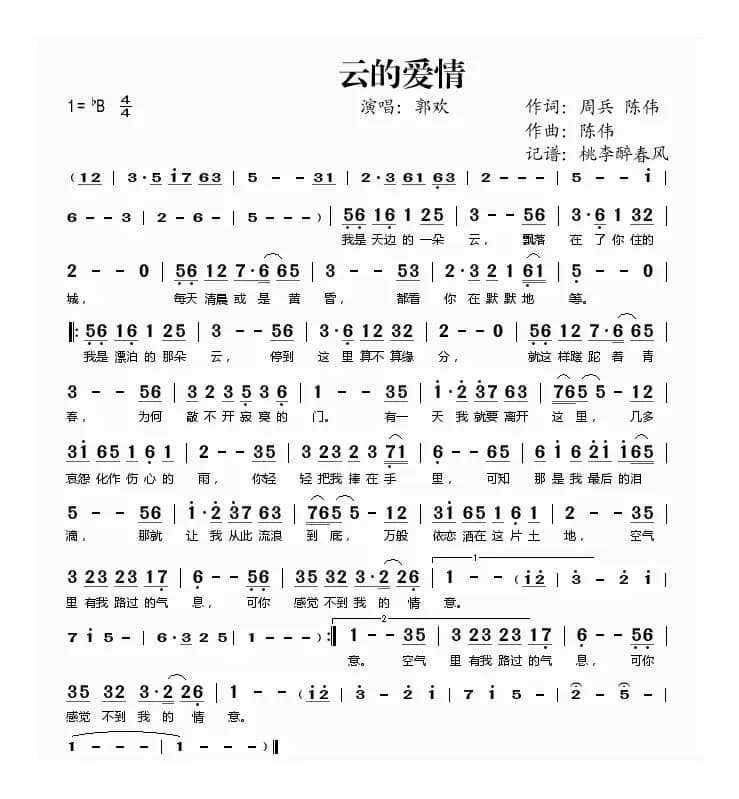 云的爱情
1= ♭B 4/4 演唱：郭欢 作词：周兵 陈伟
作曲：陈伟
记谱：桃李醉春风
（12 | 3·5 i7 63 | 5 - - 31 | 2·3 61 63 | 2 - - - | 5 - - i |
6 - - 3 | 2 - 6 - | 5 - - - ） | 56 16 1 25 | 3 - - 56 | 3·6 1 32 |
我是 天边 的 一朵 云， 飘落 在 了 你 住的
2 - - 0 | 56 12 7·6 65 | 3 - - 53 | 2·3 2 1 61 | 5 - - 0 |
城， 每天 清晨 或 是 黄 昏， 都看 你 在 默 默 地 等。
‖: 56 16 1 25 | 3 - - 56 | 3·6 12 32 | 2 - - 0 | 56 12 7·6 65 |
我是 漂泊 的 那朵 云， 停到 这 里 算不 算缘 分， 就这 样蹉 跎 着 青
3 - - 56 | 3 2 3 5 3 6 | 1 - - 35 | i·2 37 63 | 765 5 - 12 |
春， 为何 敲 不 开 寂 寞 的 门。 有一 天 我 就要 离开 这 里， 几多
3i 65 1 6 1 | 2 - - 35 | 3 23 2 3 71 | 6 - - 65 | 6 i 6 2i i65 |
哀怨 化作 伤 心 的 雨， 你轻 轻 把我 捧 在 手 里， 可知 那 是 我 最后 的泪
5 - - 56 | i·2 37 63 | 765 5 - 12 | 3i 65 1 6 1 | 2 - - 35 |
滴， 那就 让 我 从此 流浪 到 底， 万般 依恋 洒在 这 片 土 地， 空气
3 23 23 17 | 6 - - 56 | 35 32 3·2 26 | 1 - - （i2 | 3 - 2 i |
里 有我 路过 的气 息， 可你 感觉 不到 我 的 情 意。
7 i 5 - | 6·3 2 5 | 1 - - - ） :‖ 1 - - 35 | 3 23 23 17 | 6 - - 56 |
意。 空气 里 有我 路过 的气 息， 可你
35 32 3·2 26 | 1 - - （i2 | 3 - 2 i | 7 i 5 - | 2 - 5 - |
感觉 不到 我 的 情 意。
1 - - - | 1 - - - ）‖